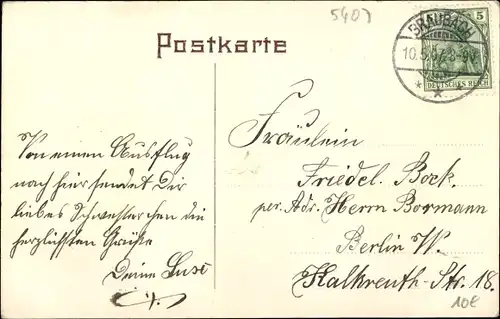 5407
Postkarte
BRAUBACH
10.5.07.8-9V
5
DEUTSCHES REICH
Von einem Ausflug
nach hier sendet Dir
liebes Schwesterchen die
herzlichsten Grüße
Deine Luise
Fräulein
Friedel Bock.
per. Adr. Herrn Bormann
Berlin W.
Kalkreuth-Str. 18.
10E